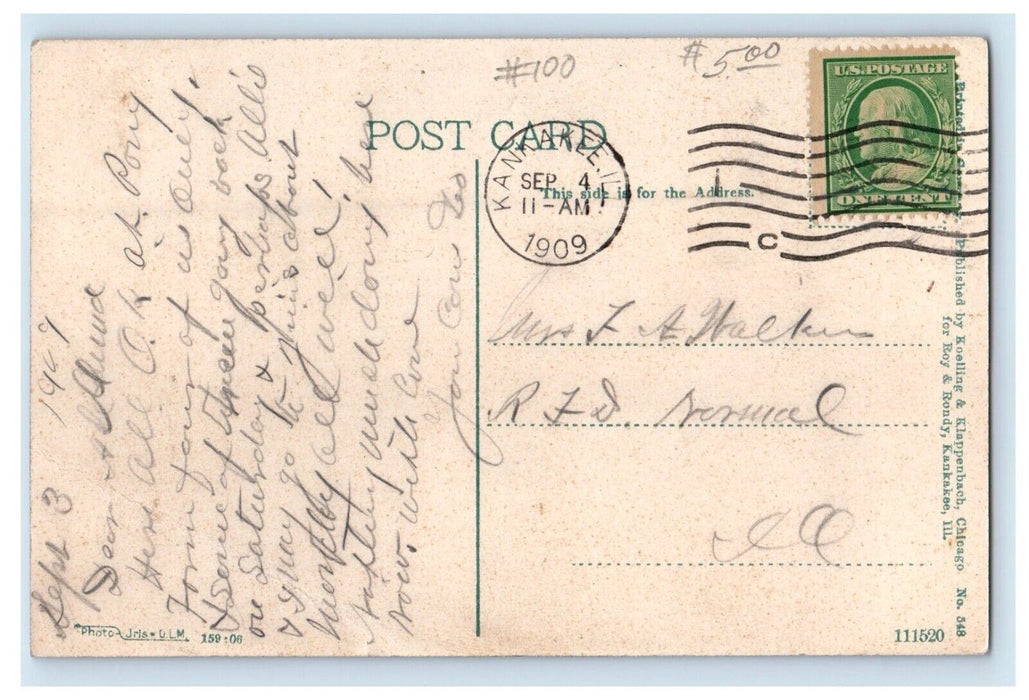 #100
#5.00
POST CARD
This side is for the Address.
KANKAKEE, ILL.
SEP 4
11-AM
1909
C
U.S. POSTAGE
ONE CENT
Mrs F A Walker
R F D. Normal
Ill
Sept 3 1909
Dear
Here all O.K at Pony
Town four of us over,
& some of them going back
on Saturday & perhaps Allis
& I may go to
all well!
now with love
Your Cou
Photo-Iris-U.L.M. 159:06
111520
Printed in Germany
Published by Koelling & Klappenbach, Chicago No. 548
for Roy & Rondy, Kankakee, Ill.